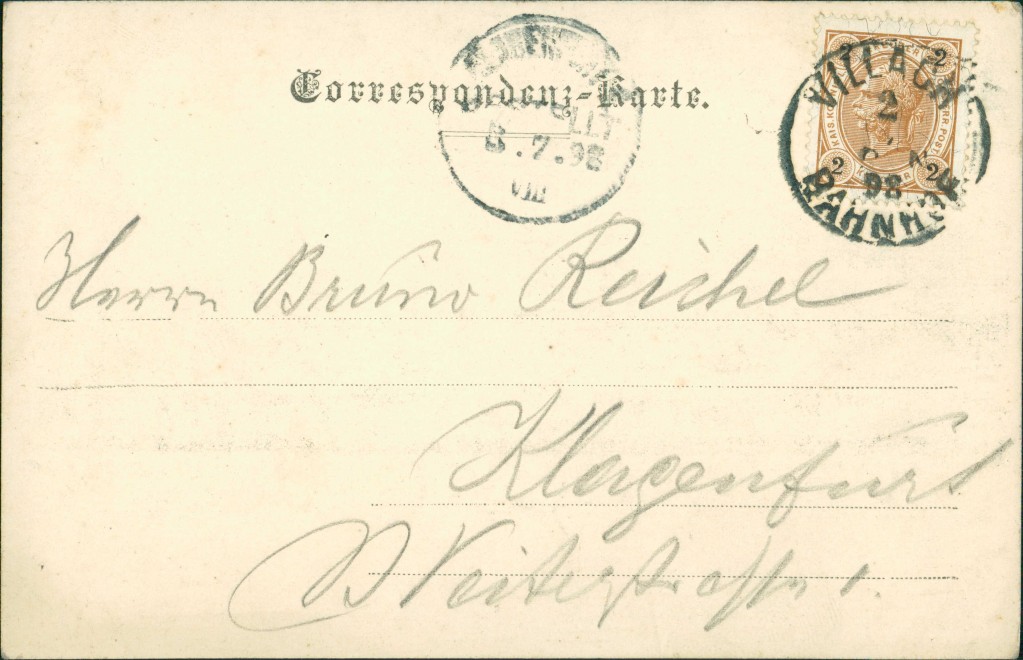 Correspondenz-Karte.
8.7.98
VIII
VILLACH
2
98
BAHNHOF
2 2
KAIS. KÖN. ÖSTERR. POST
2 KREUZER 2
Herrn Bruno Reichel
Klagenfurt
1.